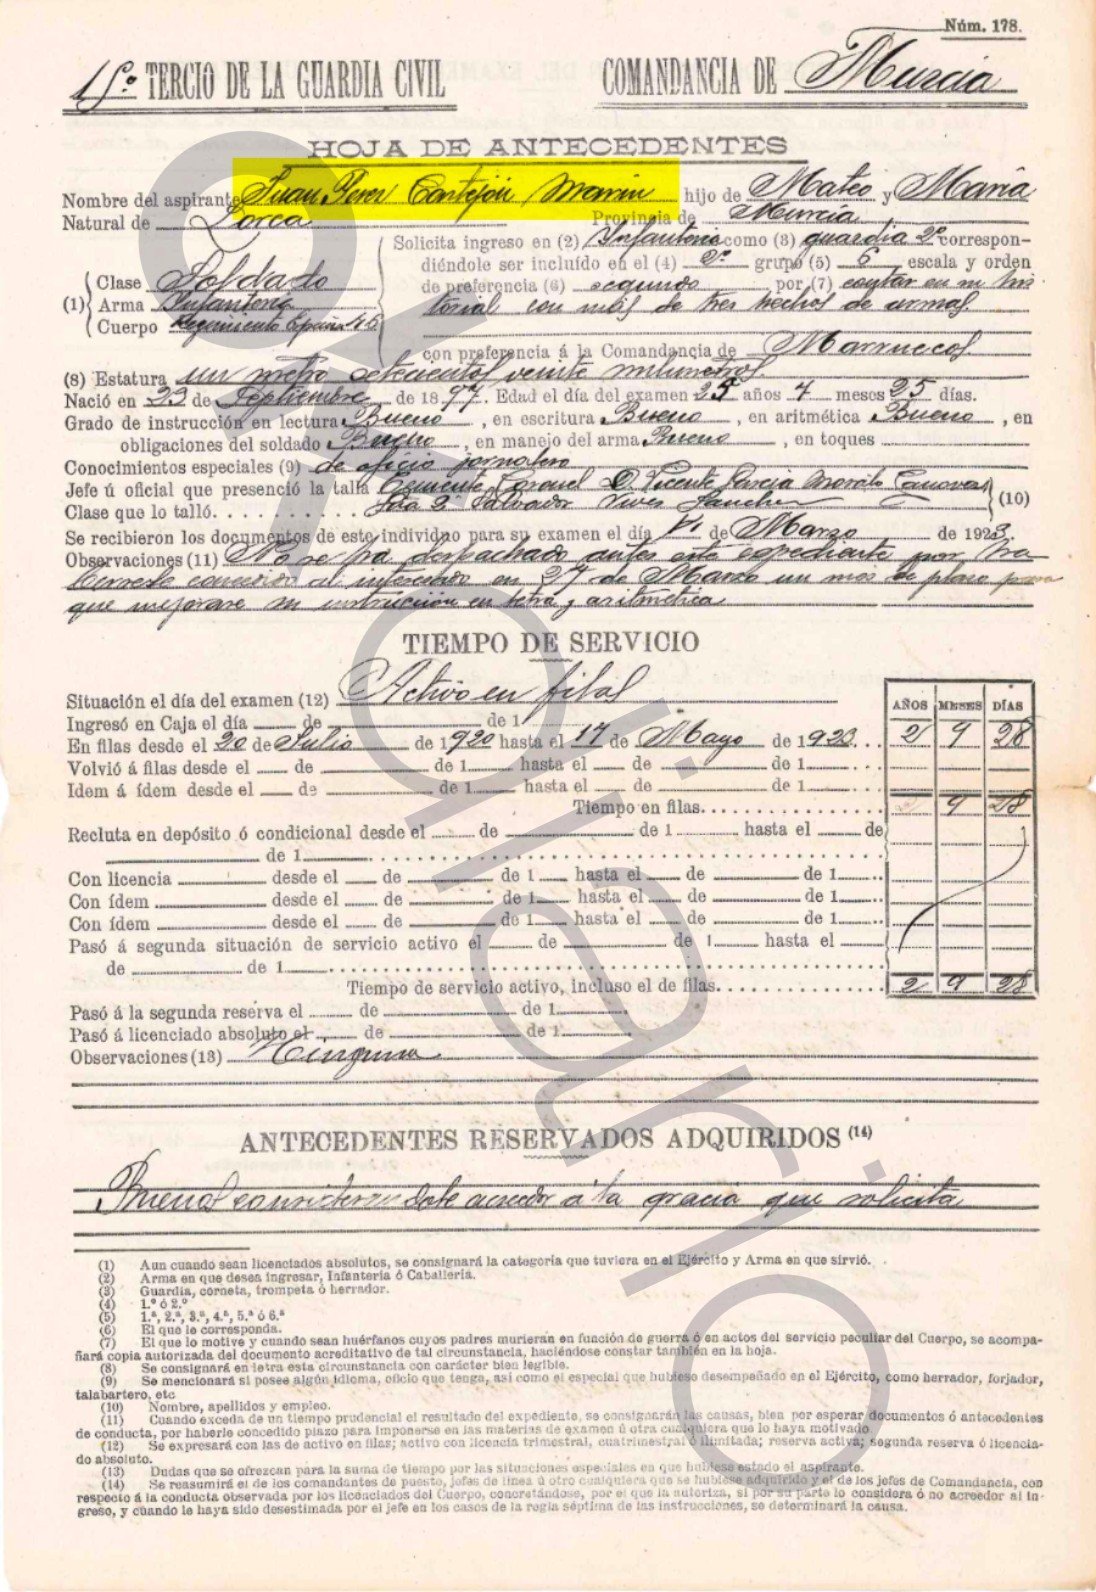 Núm. 178.
15º TERCIO DE LA GUARDIA CIVIL COMANDANCIA DE Murcia
HOJA DE ANTECEDENTES
Nombre del aspirante Juan Perez Castejón Marin hijo de Mateo y María
Natural de Lorca Provincia de Murcia
(1) Clase Soldado
Arma Infantería
Cuerpo Regimiento España 46
Solicita ingreso en (2) Infantería como (3) guardia 2º correspon-
diéndole ser incluído en el (4) 2º grupo (5) 6 escala y orden
de preferencia (6) segundo por (7) contar en su his
torial con más de tres hechos de armas.
con preferencia á la Comandancia de Marruecos.
(8) Estatura un metro setecientos veinte milimetros
Nació en 23 de Septiembre de 1897. Edad el día del examen 25 años 4 meses 25 días.
Grado de instrucción en lectura Bueno, en escritura Bueno, en aritmética Bueno, en
obligaciones del soldado Bueno, en manejo del arma Bueno, en toques
Conocimientos especiales (9) de oficio jornalero
Jefe ú oficial que presenció la talla Teniente Coronel D. Vicente Garcia Morato Canovas
Clase que lo talló. Salvador Vives Sanchez (10)
Se recibieron los documentos de este individuo para su examen el día 1º de Marzo de 1923.
Observaciones (11) No se ha despachado antes este expediente por ha
berse concedido al interesado en 27 de Marzo un mes de plazo para
que mejorase su instrucción en letra y aritmética
TIEMPO DE SERVICIO
Situación el día del examen (12) Activo en filas
AÑOS MESES DÍAS
Ingresó en Caja el día de de 1
En filas desde el 20 de Julio de 1920 hasta el 17 de Mayo de 1923. 2 9 28
Volvió á filas desde el de de 1 hasta el de de 1
Idem á ídem desde el de de 1 hasta el de de 1
Tiempo en filas. 2 9 28
Recluta en depósito ó condicional desde el de de 1 hasta el de
de 1
Con licencia desde el de de 1 hasta el de de 1
Con ídem desde el de de 1 hasta el de de 1
Con ídem desde el de de 1 hasta el de de 1
Pasó á segunda situación de servicio activo el de de 1 hasta el
de de 1
Tiempo de servicio activo, incluso el de filas. 2 9 28
Pasó á la segunda reserva el de de 1
Pasó á licenciado absoluto el de de 1
Observaciones (13) Ninguna
ANTECEDENTES RESERVADOS ADQUIRIDOS (14)
Buenos considerandole acreedor á la gracia que solicita
(1) Aun cuando sean licenciados absolutos, se consignará la categoría que tuviera en el Ejército y Arma en que sirvió.
(2) Arma en que desea ingresar, Infantería ó Caballería.
(3) Guardia, corneta, trompeta ó herrador.
(4) 1.º ó 2.º
(5) 1.ª, 2.ª, 3.ª, 4.ª, 5.ª ó 6.ª
(6) El que le corresponda.
(7) El que lo motive y cuando sean huérfanos cuyos padres murieran en función de guerra ó en actos del servicio peculiar del Cuerpo, se acompa-
ñará copia autorizada del documento acreditativo de tal circunstancia, haciéndose constar también en la hoja.
(8) Se consignará en letra esta circunstancia con carácter bien legible.
(9) Se mencionará si posee algún idioma, oficio que tenga, así como el especial que hubiese desempeñado en el Ejército, como herrador, forjador,
talabartero, etc
(10) Nombre, apellidos y empleo.
(11) Cuando exceda de un tiempo prudencial el resultado del expediente, se consignarán las causas, bien por esperar documentos ó antecedentes
de conducta, por haberle concedido plazo para imponerse en las materias de examen ú otra cualquiera que lo haya motivado.
(12) Se expresará con las de activo en filas; activo con licencia trimestral, cuatrimestral ó ilimitada; reserva activa; segunda reserva ó licencia-
do absoluto.
(13) Dudas que se ofrezcan para la suma de tiempo por las situaciones especiales en que hubiese estado el aspirante.
(14) Se reasumirá el de los comandantes de puesto, jefes de línea ú otro cualquiera que se hubiese adquirido y el de los jefes de Comandancia, con
respecto á la conducta observada por los licenciados del Cuerpo, concretándose, por el que la autoriza, si por su parte lo considera ó no acreedor al in-
greso, y cuando le haya sido desestimada por el jefe en los casos de la regla séptima de las instrucciones, se determinará la causa.